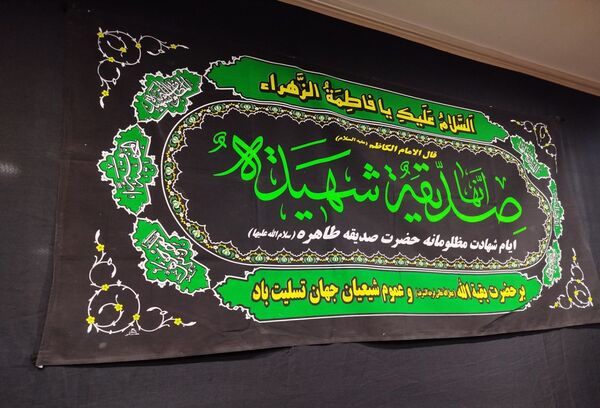 اَلسَّلامُ عَلَيكِ يا فاطِمَةُ الزَّهراء
قال الامام الكاظم (علیه السلام)
اِنَّها صِدّيقَةٌ شَهيدَةٌ
ایام شهادت مظلومانه حضرت صدیقه طاهره (سلام الله علیها)
بر حضرت بقیة الله و عموم شیعیان جهان تسلیت باد